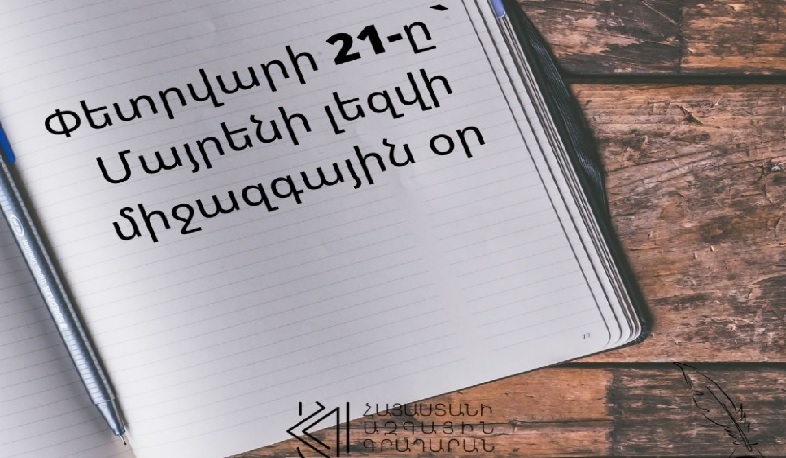 Փետրվարի 21-ը՝
Մայրենի լեզվի
միջազգային օր
ՀԱՅԱՍՏԱՆԻ
ԱԶԳԱՅԻՆ
ԳՐԱԴԱՐԱՆ